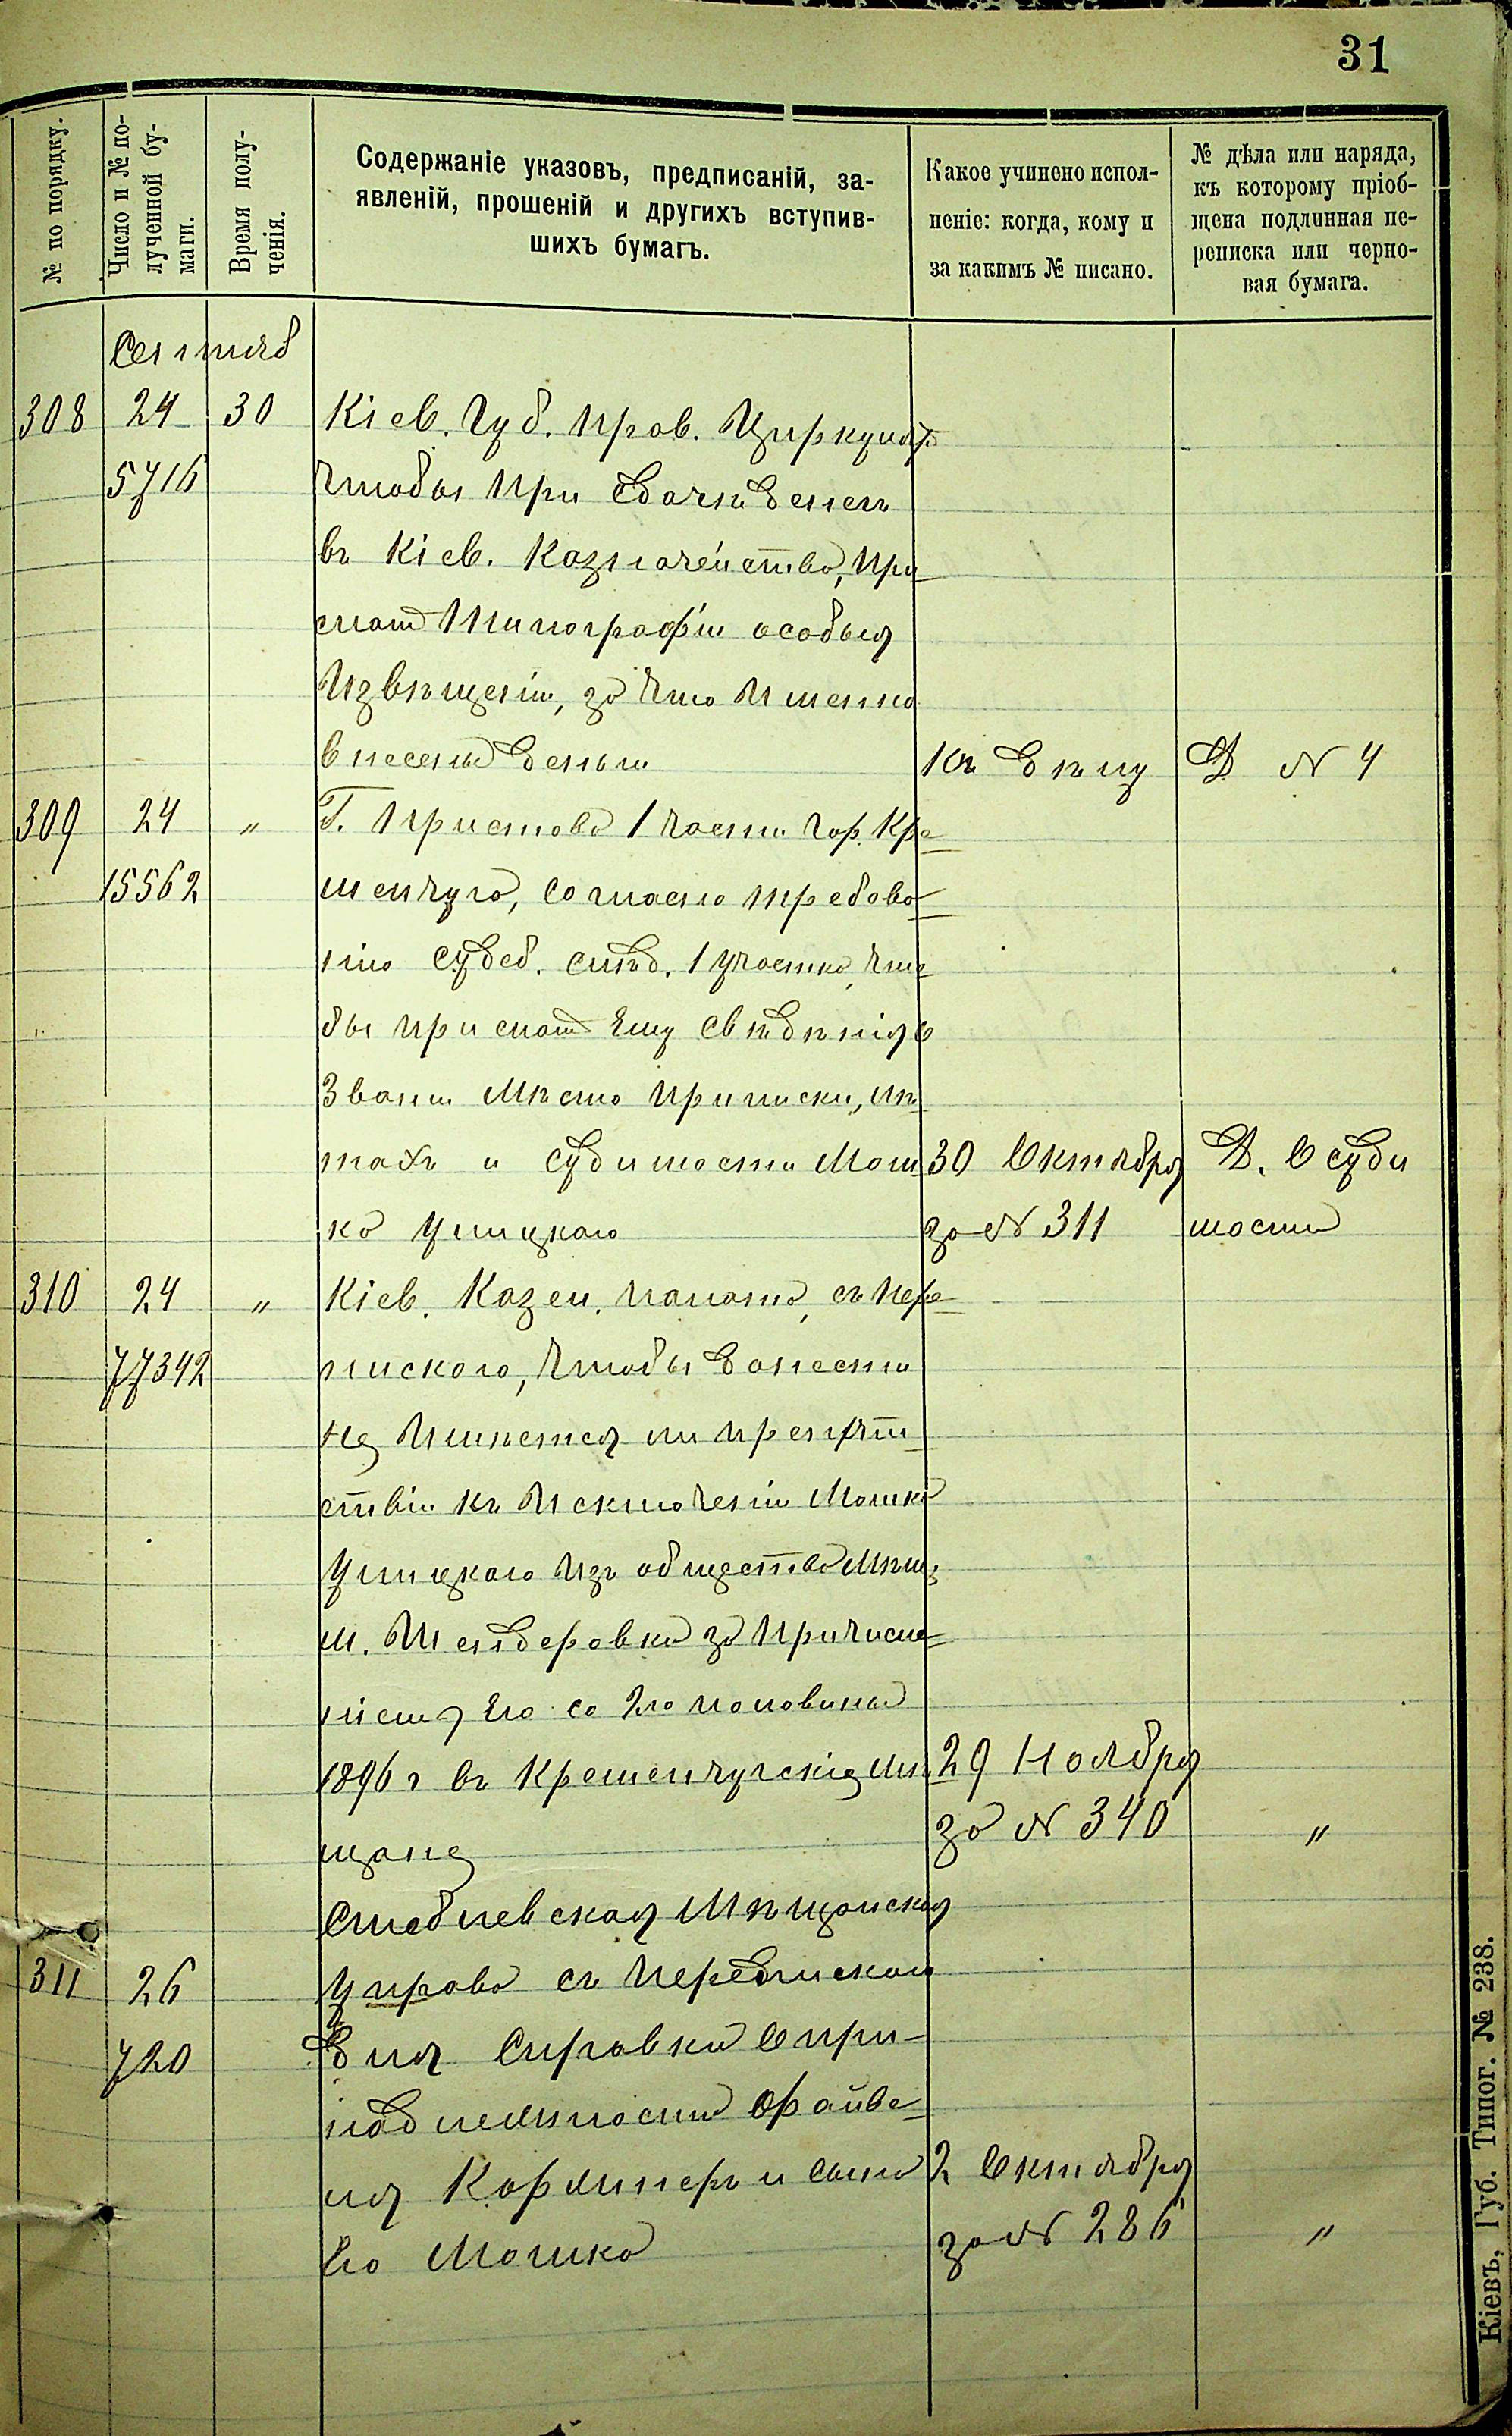 31
№ по порядку.
Число и № по-
лученной бу-
маги.
Время полу-
ченія.
Содержаніе указовъ, предписаній, за-
явленій, прошеній и другихъ вступив-
шихъ бумагъ.
Какое учинено испол-
неніе: когда, кому и
за какимъ № писано.
№ дѣла или наряда,
къ которому пріоб-
щена подлинная пе-
реписка или черно-
вая бумага.
Сентяб
308 24 30 Кіев. Губ. Прав. Циркуляр
5716 чтобы при денегъ
въ Кіев. Казначейство, при
слать Типографіи особыя
Извѣщенія, за что Именно
внесены деньги Къ дѣлу Д № 4
309 24 " Г. Пристава 1 части гор. Кре-
15562 менчуга, согласно требова-
нію Судеб. слѣд. 1 участка, что-
бы прислать Ему свѣдѣнія о
Звании Мѣсто приписки, лѣ-
тахъ и судимости Мош 30 Октября Д. О суди
ка Улицкаго за № 311 мости
310 24 " Кіев. Казен. палата, съ пере-
77342 пискою, чтобы донести
не Имѣется ли препят-
ствія къ Исключенію Мошка
Улицкаго Изъ общества Мѣщ.
м. Шендеровки за причисле-
ніемъ Его со 2й половины
1896 г въ Кременчугскіе Мѣ 29 Ноября
щане за № 340 "
Стеблевская Мѣщанская
311 26 управа съ перепискою
720 для Справки О при-
надлежности Файве-
ля Коржнеръ и сына 2 Октября
Его Мошка за № 286 "
Кіевъ, Губ. Типог. № 238.